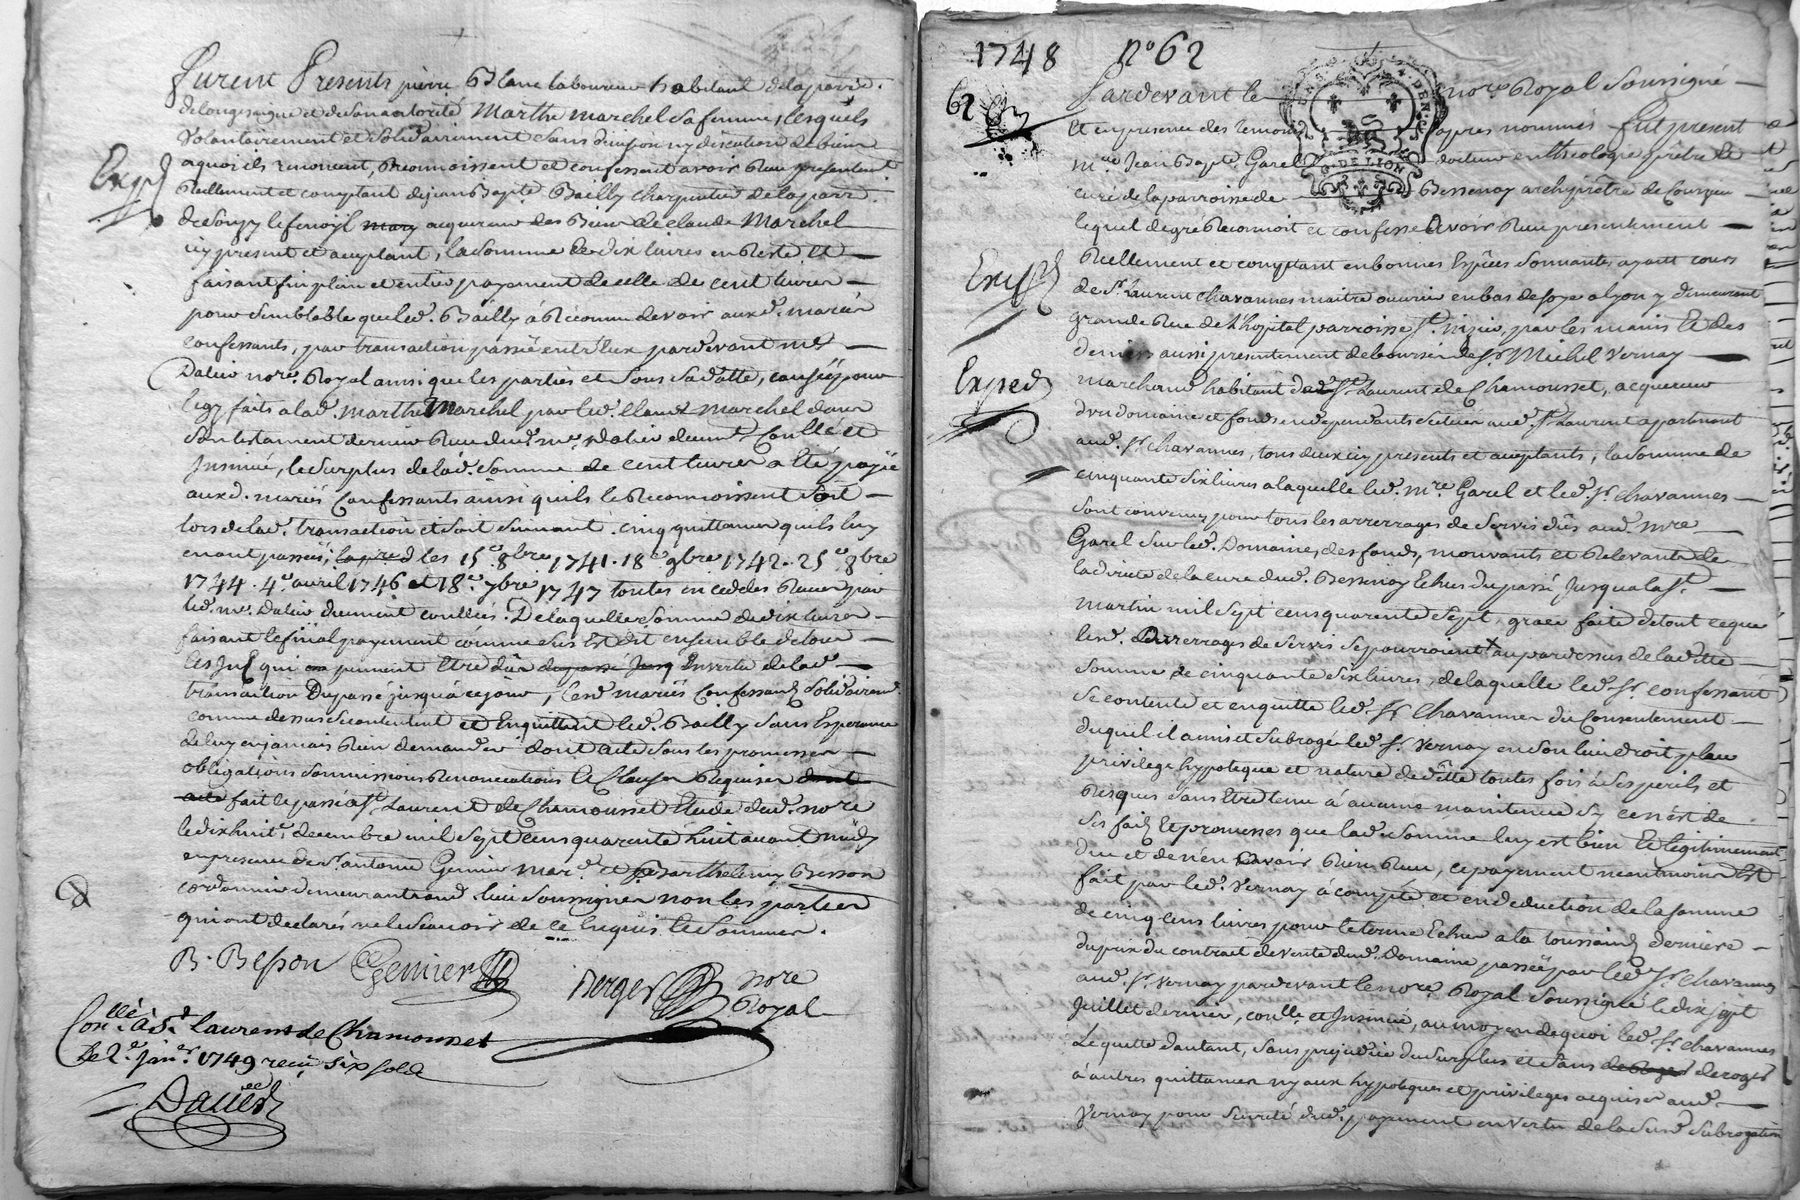 furent Presents pierre Blanc laboureur habitant de la parr.e
de longesaigne et de son autorité Marthe marchel sa femme, lesquels
volontairement et solidairement sans division ny discution de bien
a quoi ils renoncent, Reconnoissent et confessent avoir Recu presentem.t
Expé
Reellement et comptant de jean Bapt.e Bailly charpentier de la parr.e
de Souzy le fenoÿl acquereur des Biens de claude Marchel
icy present et acceptant, la somme de dix livres en Reste et
faisant fin plein et entier payement de celle de cent livres
pour semblable que led. Bailly á Reconnu devoir auxd. mariés
confessants, par transaction passée entr'eux pardevant me
Dalin nore. Royal ainsi que les parties et sous sa datte, causée pour
legz faits a lad. marthe Marchel par led. claude Marchel dans
son testament dernier Recu dud. me. Dalin duemt. Conllé et
Insinué, le surplus de lad. somme de cent livres a eté payé
auxd. mariés Confessants ainsi quils le Reconnoissent soit
lors de lad. transaction et soit suivant cinq quittances quils luy
en ont passés, les 15e. 8bre 1741. 18e 9bre 1742. 25e 8bre
1744. 4e avril 1746 et 18e. 7bre 1747 toutes en cedules Recues par
led. me. Dalin duement conllées. De laquelle somme de dix livres
faisant le final payement comme sus Est dit ensemble de tous
les Int qui peuvent etre dûs En vertu de lad.
transaction Du passé jusquá ce jour, lesd. mariés Confessants solidairemt.
comme dessus se contentent et Enquittent led. Bailly sans Esperance
de luy en jamais Rien demander dont acte sous les promesses
obligations soumissions Renonciations et Clauses Requises
fait et passé a St. Laurent de Chamousset Etude dud. nore
le dix huite. decembre mil sept cens quarante huit avant midy
en presence de sr. antoine Gemier mard. et Barthelemy Besson
cordonnier demeurants aud. lieu soussignés non les parties
qui ont declarés ne le scavoir de ce Enquis et sommés.
B. Besson Gemier Berger nore Royal
Conllé. à St. Laurens de Chamousset
Le 2e. janer. 1749 recu six sols
Daüed
1748 N° 62
62
Pardevant le nore. Royal Soussigné
Et en presence des temoins apres nommés fut present
G. DE LION
me. Jean Bapte. Garel docteur en theologie prêtre et
curé de la parroisse de Bessenay archiprêtre de Courzieu
lequel de gré Reconnoit et confesse avoir Recu presentement
Reellement et comptant en bonnes Espèces sonnantes ayant cours
Expé
de Sr. Laurent Chavannes maitre ouvrier en bas de soye a lyon y demeurant
grande Rue de l'hopital parroisse St. nizier, par les mains et des
deniers aussi presentement deboursés de sr. Michel Vernay
Expéd
marchand habitant dud. St. Laurent de Chamousset, acquereur
d'un domaine et fonds en dependants situés aud. St. Laurent apartenant
aud. Sr. Chavannes, tous deux icy presents et acceptants, la somme de
cinquante six livres a laquelle led. mre. Garel et led. sr. Chavannes
sont convenus pour tous les arrerages de servis dûs aud. mre
Garel sur led. Domaine, des fonds, mouvants et Relevants de
la directe de la cure dud. Bessenay Echus du passé jusqua la St.
martin mil sept cens quarente sept, grace faite de tout ce que
lesd. arrerrages de servis se pourroient au pardessus de laditte
somme de cinquante six livres, de laquelle led. sr. confessant
se contente et enquitte led. sr. Chavannes du Consentement
duquel il a mis et subrogé led. sr. Vernay en son lieu droit place
privilege hypoteque et nature de dette toutes fois á ses perils et
Risques sans Etre tenu á aucune maintenue si ce n'est de
ses faits et promesses que lad. somme luy est bien et legitimement
due et de n'en avoir Rien Recu, ce payement neantmoins Est
fait par led. Vernay á compte et en deduction de la somme
de cinq cens livres pour le terme Echu a la toussaint derniere
du prix du contract de vente dud. Domaine passée par led. sr. Chavannes
aud. sr. Vernay pardevant le nore. Royal soussigné le dix sept
Juillet dernier, conllé et Insinué, au moyen de quoi led. sr. Chavannes
le quitte d'autant, sans prejudice du surplus et sans deroger
á autres quittances ny aux hypoteques et privileges acquises aud.
Vernay pour sureté dud. payement en vertu de la susd. subrogation